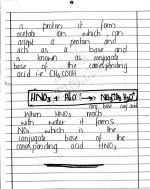 a proton it form
acetate ion which can
accept a proton and
acts as a base and
is known as conjugate
base of the corresponding
acid i.e CH₃COOH
HNO₃ + H₂O → NO₃⁻ + H₃O⁺
conj. base conj. acid
When HNO₃ reacts
with water it forms
NO₃⁻ which is the
conjugate base of the
corresponding acid HNO₃